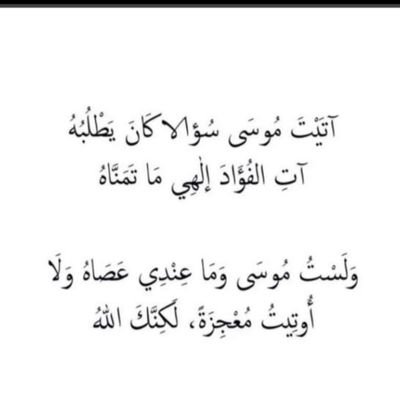 آتَيْتَ مُوسَى سُؤالا كَانَ يَطْلُبُهُ
آتِ الفُؤَّادَ إلٰهِي مَا تَمَنَّاهُ
وَلَسْتُ مُوسَى وَمَا عِنْدِي عَصَاهُ وَلَا
أُوتِيتُ مُعْجِزَةً، لَكِنَّكَ اللهُ